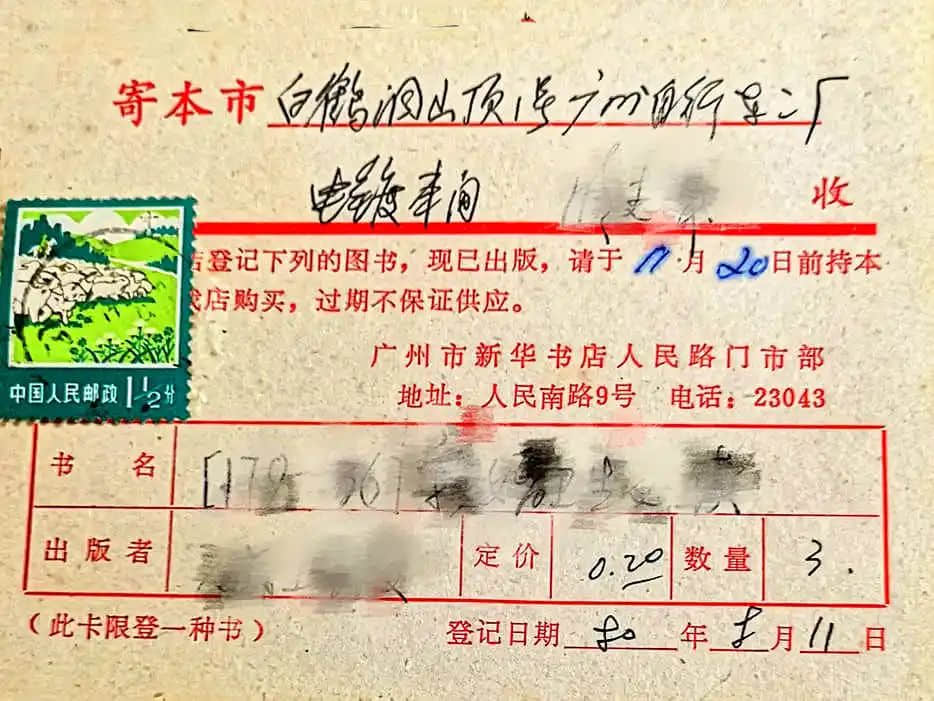 寄本市 白鹤洞山顶1号广州自行车二厂
电镀车间 收
登记下列的图书，现已出版，请于 11 月 20 日前持本
店购买，过期不保证供应。
广州市新华书店人民路门市部
地址：人民南路9号 电话：23043
中国人民邮政 1 1/2 分
书名
出版者 定价 0.20 数量 3.
（此卡限登一种书） 登记日期 80 年 8 月 11 日